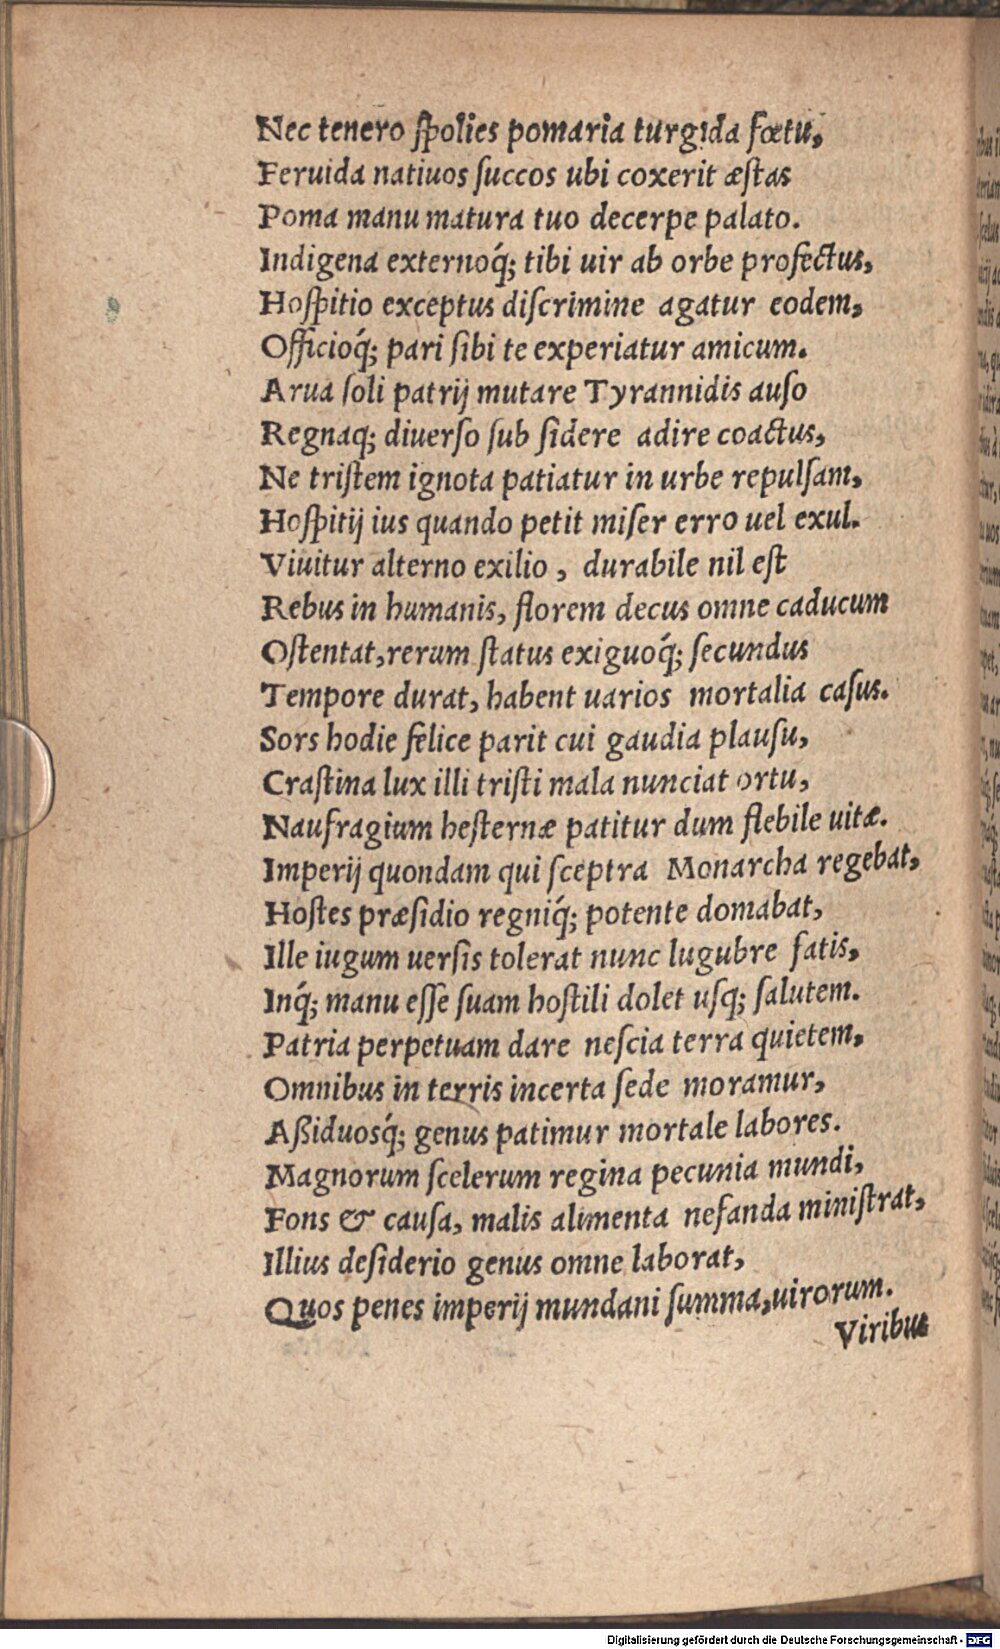 Nec tenero ſpolies pomaria turgida fœtu,
Feruida natiuos ſuccos ubi coxerit æſtas
Poma manu matura tuo decerpe palato.
Indigena externoq́; tibi uir ab orbe profectus,
Hoſpitio exceptus diſcrimine agatur eodem,
Officioq́; pari ſibi te experiatur amicum.
Arua ſoli patrij mutare Tyrannidis auſo
Regnaq; diuerſo ſub ſidere adire coactus,
Ne triſtem ignota patiatur in urbe repulſam,
Hoſpitij ius quando petit miſer erro uel exul.
Viuitur alterno exilio, durabile nil eſt
Rebus in humanis, florem decus omne caducum
Oſtentat, rerum ſtatus exiguoq́; ſecundus
Tempore durat, habent uarios mortalia caſus.
Sors hodie felice parit cui gaudia plauſu,
Craſtina lux illi triſti mala nunciat ortu,
Naufragium heſternæ patitur dum flebile uitæ.
Imperij quondam qui ſceptra Monarcha regebat,
Hoſtes præſidio regniq́; potente domabat,
Ille iugum uerſis tolerat nunc lugubre fatis,
Inq́; manu eſſe ſuam hoſtili dolet uſq; ſalutem.
Patria perpetuam dare neſcia terra quietem,
Omnibus in terris incerta ſede moramur,
Aßiduosq́; genus patimur mortale labores.
Magnorum ſcelerum regina pecunia mundi,
Fons & cauſa, malis alimenta nefanda miniſtrat,
Illius deſiderio genus omne laborat,
Quos penes imperij mundani ſumma, uirorum.
Viribus
Digitalisierung gefördert durch die Deutsche Forschungsgemeinschaft - DFG